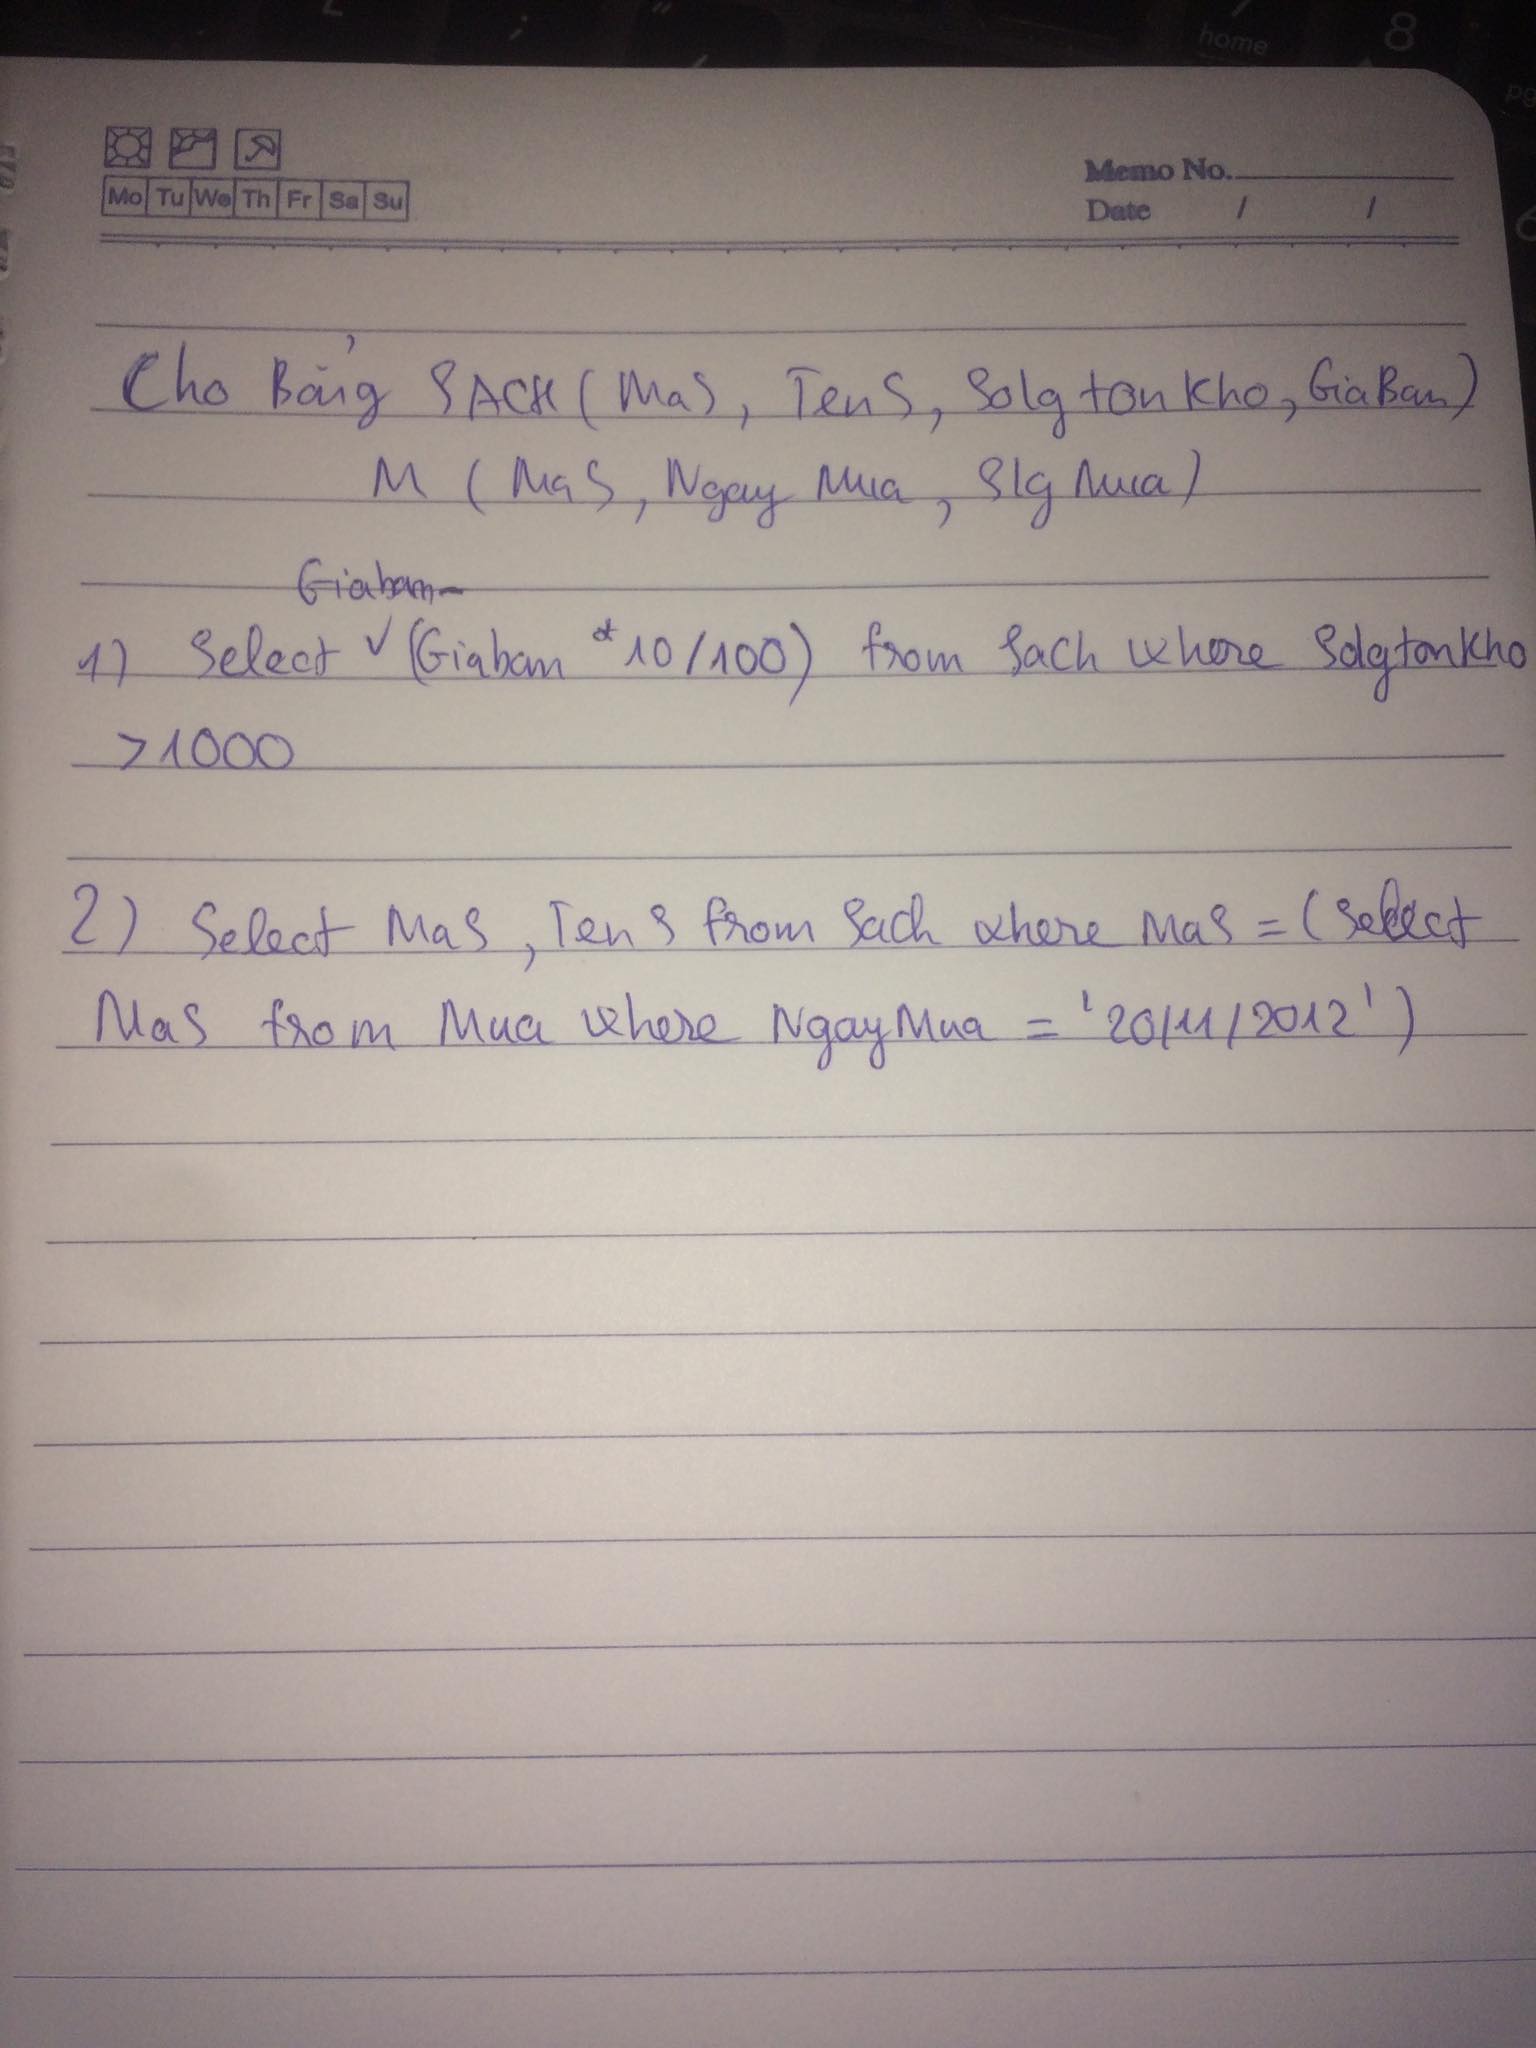 home
8
Mo Tu We Th Fr Sa Su
Memo No.
Date / /
Cho Bảng SACH (MaS, TenS, SolgtonKho, GiaBan)
M (MaS, Ngay Mua, Slg Mua)
Giaban-
1) Select ✓ (Giaban * 10/100) from Sach where SolgtonKho
>1000
2) Select MaS, TenS from Sach where MaS = (Select
MaS from Mua where NgayMua = '20/11/2012')